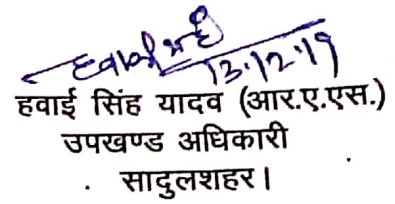 13.12.19
हवाई सिंह यादव (आर.ए.एस.)
उपखण्ड अधिकारी
सादुलशहर।